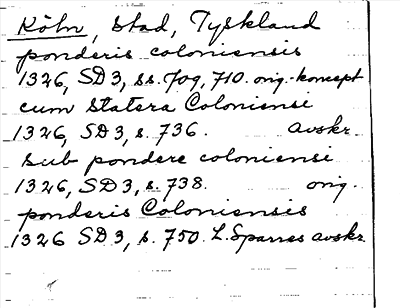 Köln, stad, Tyskland
ponderis coloniensis
1326, SD 3, ss. 709, 710. orig.-koncept
cum statera Coloniensi
1326, SD 3, s. 736. avskr.
sub pondere coloniensi
1326, SD 3, s. 738. orig.
ponderis Coloniensis
1326 SD 3, s. 750 L. Sparres avskr.